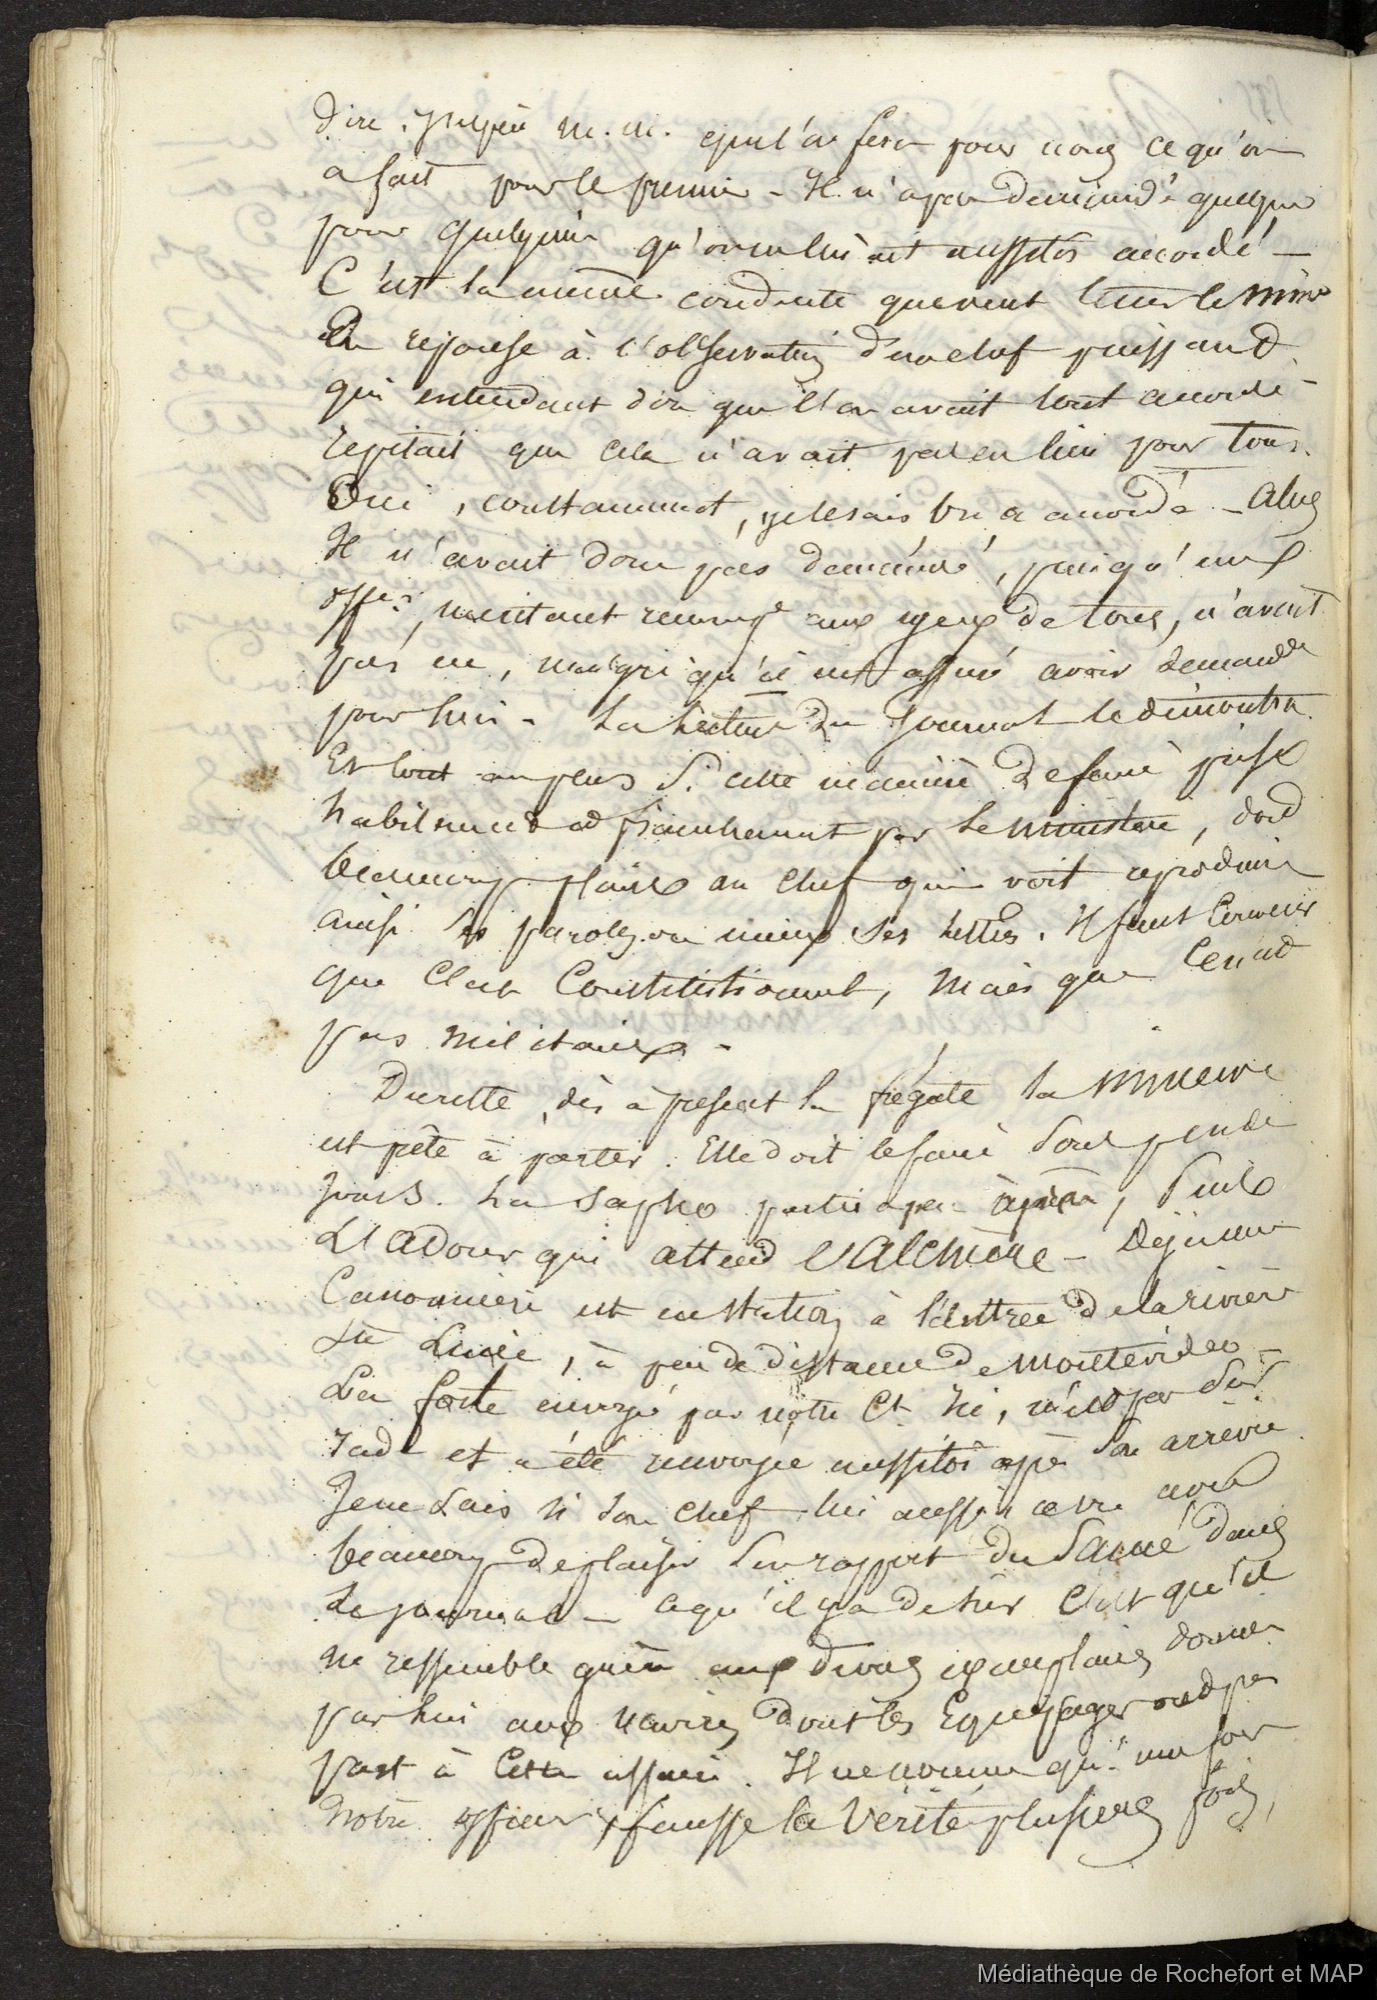 dire. m.m. que l'on fera pour nous ce qu'on
a fait pour le premier - Il n'a pas demandé quelque
pour quelqu'un qu'on ne lui ait aussitôt accordé -
C'est la même conduite que veut tenir le minre
En reponse à l'observation d'un chef puissant
qui entendant dire que l'on avait tout accordé
repetait que cela n'avait pas eu lieu pour tous.
Oui, constamment, je le sais on a accordé - alors
Il n'avait donc pas demandé, puisqu'un
offer, meritant aux yeux de tous, n'avait
pas eu, malgré qu'il eut assuré avoir demandé
pour lui - La lecture du Journal le démontra.
Et tout au plus si cette manière de faire prise
habilement et franchement par le ministère, doit
beaucoup plaire au chef qui voit reproduire
ainsi ses paroles ou mieux ses lettres. Il faut convenir
que c'est Constitutionnel, mais que ce n'est
pas militaire -
Du reste, dès à présent la frégate la Minerve
est prête à partir. Elle doit le faire sous peu de
jours. La Sapho partira peu après, puis
L'Adour qui attend l'Alcmène - Déjà une
Canonnière est en station à l'entrée de la rivière
Ste Lucie, à peu de distance de Montevideo -
La forte envoyé par notre Ct. ici, n'est pas sur
rade et a été renvoyée aussitôt après son arrivée
Je ne sais si son chef lui aussi a vu avec
beaucoup de plaisir son rapport du Sacré dans
le journal - ce qu'il y a de sûr c'est qu'il
ne ressemble guère aux divers exemplaires donnés
par lui aux navires dont les Equipages ont pris
part à cette affaire. Il ne nomme qu'une fois
notre officier, fausse la vérité plusieurs fois,
Médiathèque de Rochefort et MAP